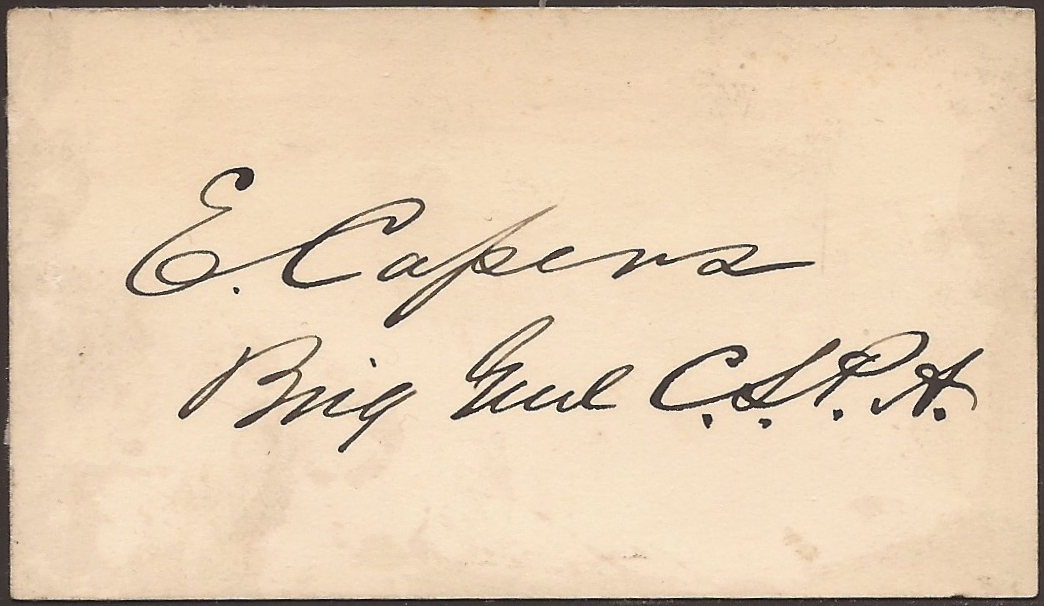 E. Capers
Brig Genl C.S.P.A.